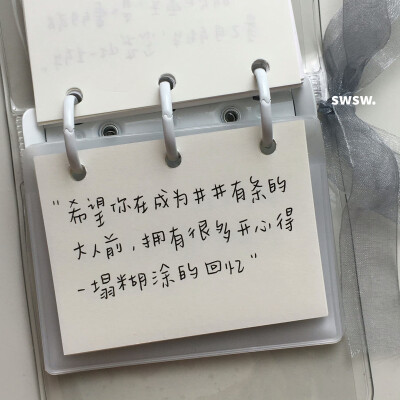 swsw.
"希望你在成为井井有条的
大人前,拥有很多开心得
一塌糊涂的回忆"